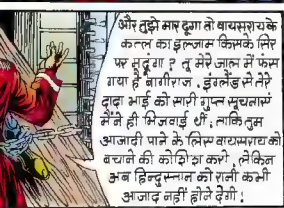 और तुझे मार दूंगा तो वायसराय के
कत्ल का इल्जाम किसके सिर
पर मढूंगा ? तू मेरे जाल में फंस
गया है बागीराज . इंग्लैंड से तेरे
दादा भाई को सारी गुप्त सूचनाएं
मैंने ही भिजवाई थीं ; ताकि तुम
आजादी पाने के लिए वायसराय को
बचाने की कोशिश करो . लेकिन
अब हिन्दुस्तान को रानी कभी
आजाद नहीं होने देगी !